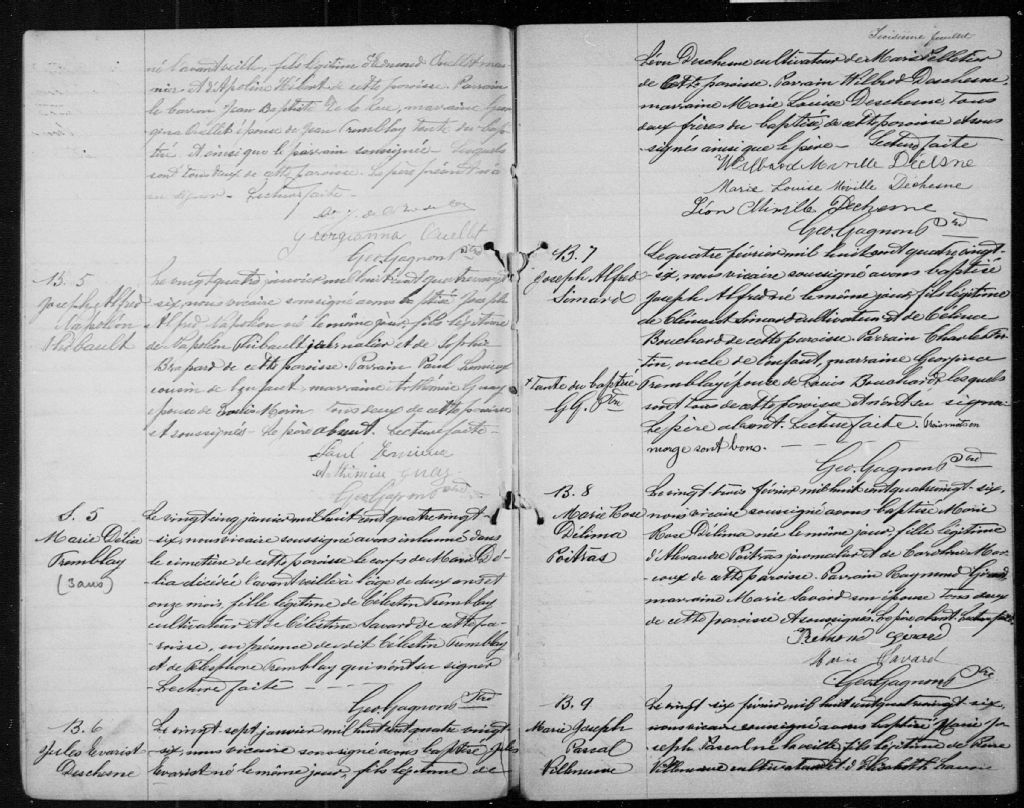 né l'avantveille, fils légitime d'Edmond Ouellet meu-
nier et d'Apoline Hébert de cette paroisse. Parrain
le barron Jean Baptiste De la Rue, marraine Geor-
gina Ouellet épouse de Jean Tremblay tante du bap-
tisé et ainsi que le parrain soussignée - lesquels
sont tous deux de cette paroisse. Le père présent n'a
su signer - Lecture faite -
Georgianna Ouellet
Geo. Gagnon Ptre
B. 5
Joseph Alfred
Napoléon
Thibault
Le vingt quatre janvier mil huit cent quatre vingt
six, nous vicaire soussigné avons baptisé Joseph
Alfred Napoléon né le même jour, fils légitime
de Napoléon Thibault journalier et de Sophie
de cette paroisse. Parrain Paul Lemieux
cousin de l'enfant marraine Arthémise Guay
épouse de Louis Morin tous deux de cette paroisse
et soussignés - le père absent. Lecture faite -
Paul Lemieux
Athémise Guay
Geo. Gagnon Ptre
S. 5
Marie Délia
Tremblay
(3 ans)
Le vingt cinq janvier mil huit cent quatre vingt
six, nous vicaire soussigné avons inhumé dans
le cimetière de cette paroisse le corps de Marie Dé-
lia décédée l'avantveille à l'âge de deux ans et
onze mois, fille légitime de Célestin Tremblay
cultivateur et de Célestine Savard de cette pa-
roisse, en présence du dit Célestin Tremblay
et de Télesphore Tremblay qui n'ont su signer
Lecture faite - - - -
Geo. Gagnon Ptre
B. 6
Jules Evarist
Deschesne
Le vingt sept janvier mil huit cent quatre vingt
six, nous vicaire soussigné avons baptisé Jules
Evarist né le même jour, fils légitime de
Troisième feuillet
Léon Deschesne cultivateur et de Marie Pelletier
de cette paroisse. Parrain Wilbrod Deschesne,
marraine Marie Louise Deschesne, tous
deux frères du baptisé, de cette paroisse et sous
signés ainsi que le père - Lecture faite
Wilbrod Merville Déchesne
Marie Louise Miville Dechesne
Léon Miville Dechesne
Geo. Gagnon Ptre
B. 7
Joseph Alfred
Simard
Le quatre février mil huit cent quatre vingt-
six, nous vicaire soussigné avons baptisé
Joseph Alfred né le même jour, fils légitime
de Clément Simard cultivateur et de Célina
Bouchard de cette paroisse. Parrain Charles For-
tin, oncle de l'enfant, marraine Georgina
+ tante du baptisé
G G. Ptre
Tremblay épouse de Louis Bouchard + lesquels
sont tous de cette paroisse et n'ont su signer
Le père absent. Lecture faite. Trois mots en
marge sont bons. - - - -
Geo. Gagnon Ptre
B. 8
Marie Rose
Délima
Poitras
Le vingt trois février mil huit cent quatre vingt-six,
nous vicaire soussigné avons baptisé Marie
Rose Délima née le même jour, fille légitime
d'Alexandre Poitras journalier et de Caroline Mar-
coux de cette paroisse. Parrain Raymond Girard
marraine Marie Savard son épouse tous deux
de cette paroisse et soussignés. Le père absent. Lecture faite
Remond Girard
Marie Savard
Geo. Gagnon Ptre
B. 9
Marie Joseph
Pascal
Villeneuve
Le vingt six février mil huit cent quatre vingt six,
nous vicaire soussigné avons baptisé Marie Jo-
seph Pascal né la veille, fils légitime de Pierre
Villeneuve cultivateur et d'Elisabeth